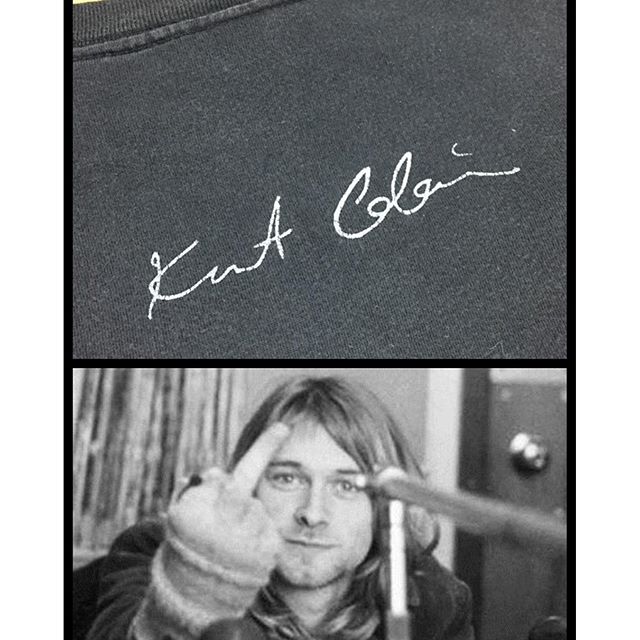 Kurt Cobain